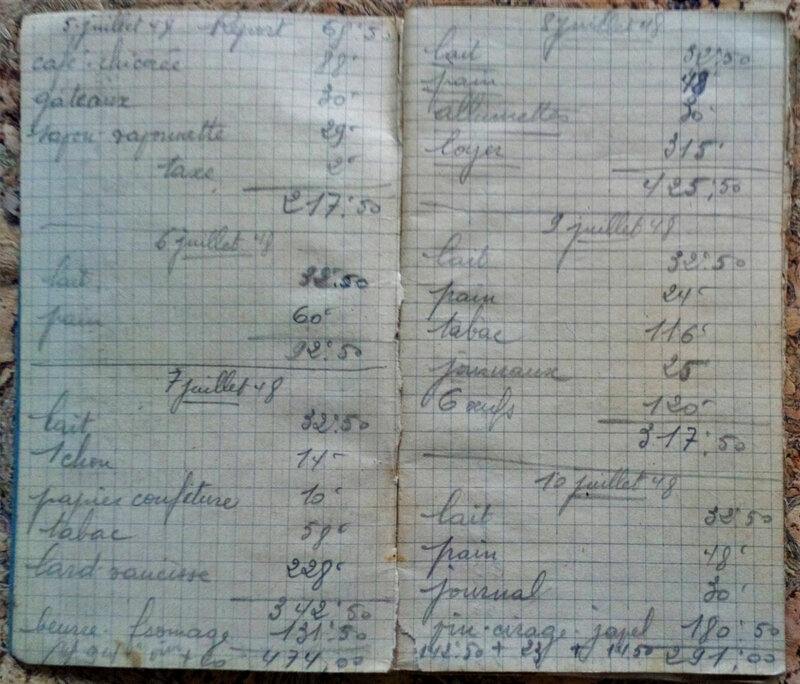 5 juillet 48 Report 68:50
café chicorée 88
gâteaux 30
savon savonnette 29
taxe 2
217:50
6 juillet 48
lait 32:50
pain 60
92:50
7 juillet 48
lait 32:50
1 chou 14
papier confiture 10
tabac 58
lard saucisse 228
342:50
beurre fromage 131:50
474,00
8 juillet 48
lait 32:50
pain 48
allumettes 30
loyer 315
425,50
9 juillet 48
lait 32:50
pain 24
tabac 116
journaux 25
6 œufs 120
317:50
10 juillet 48
lait 32:50
pain 48
journal 30
vin cirage javel 180:50
291:00